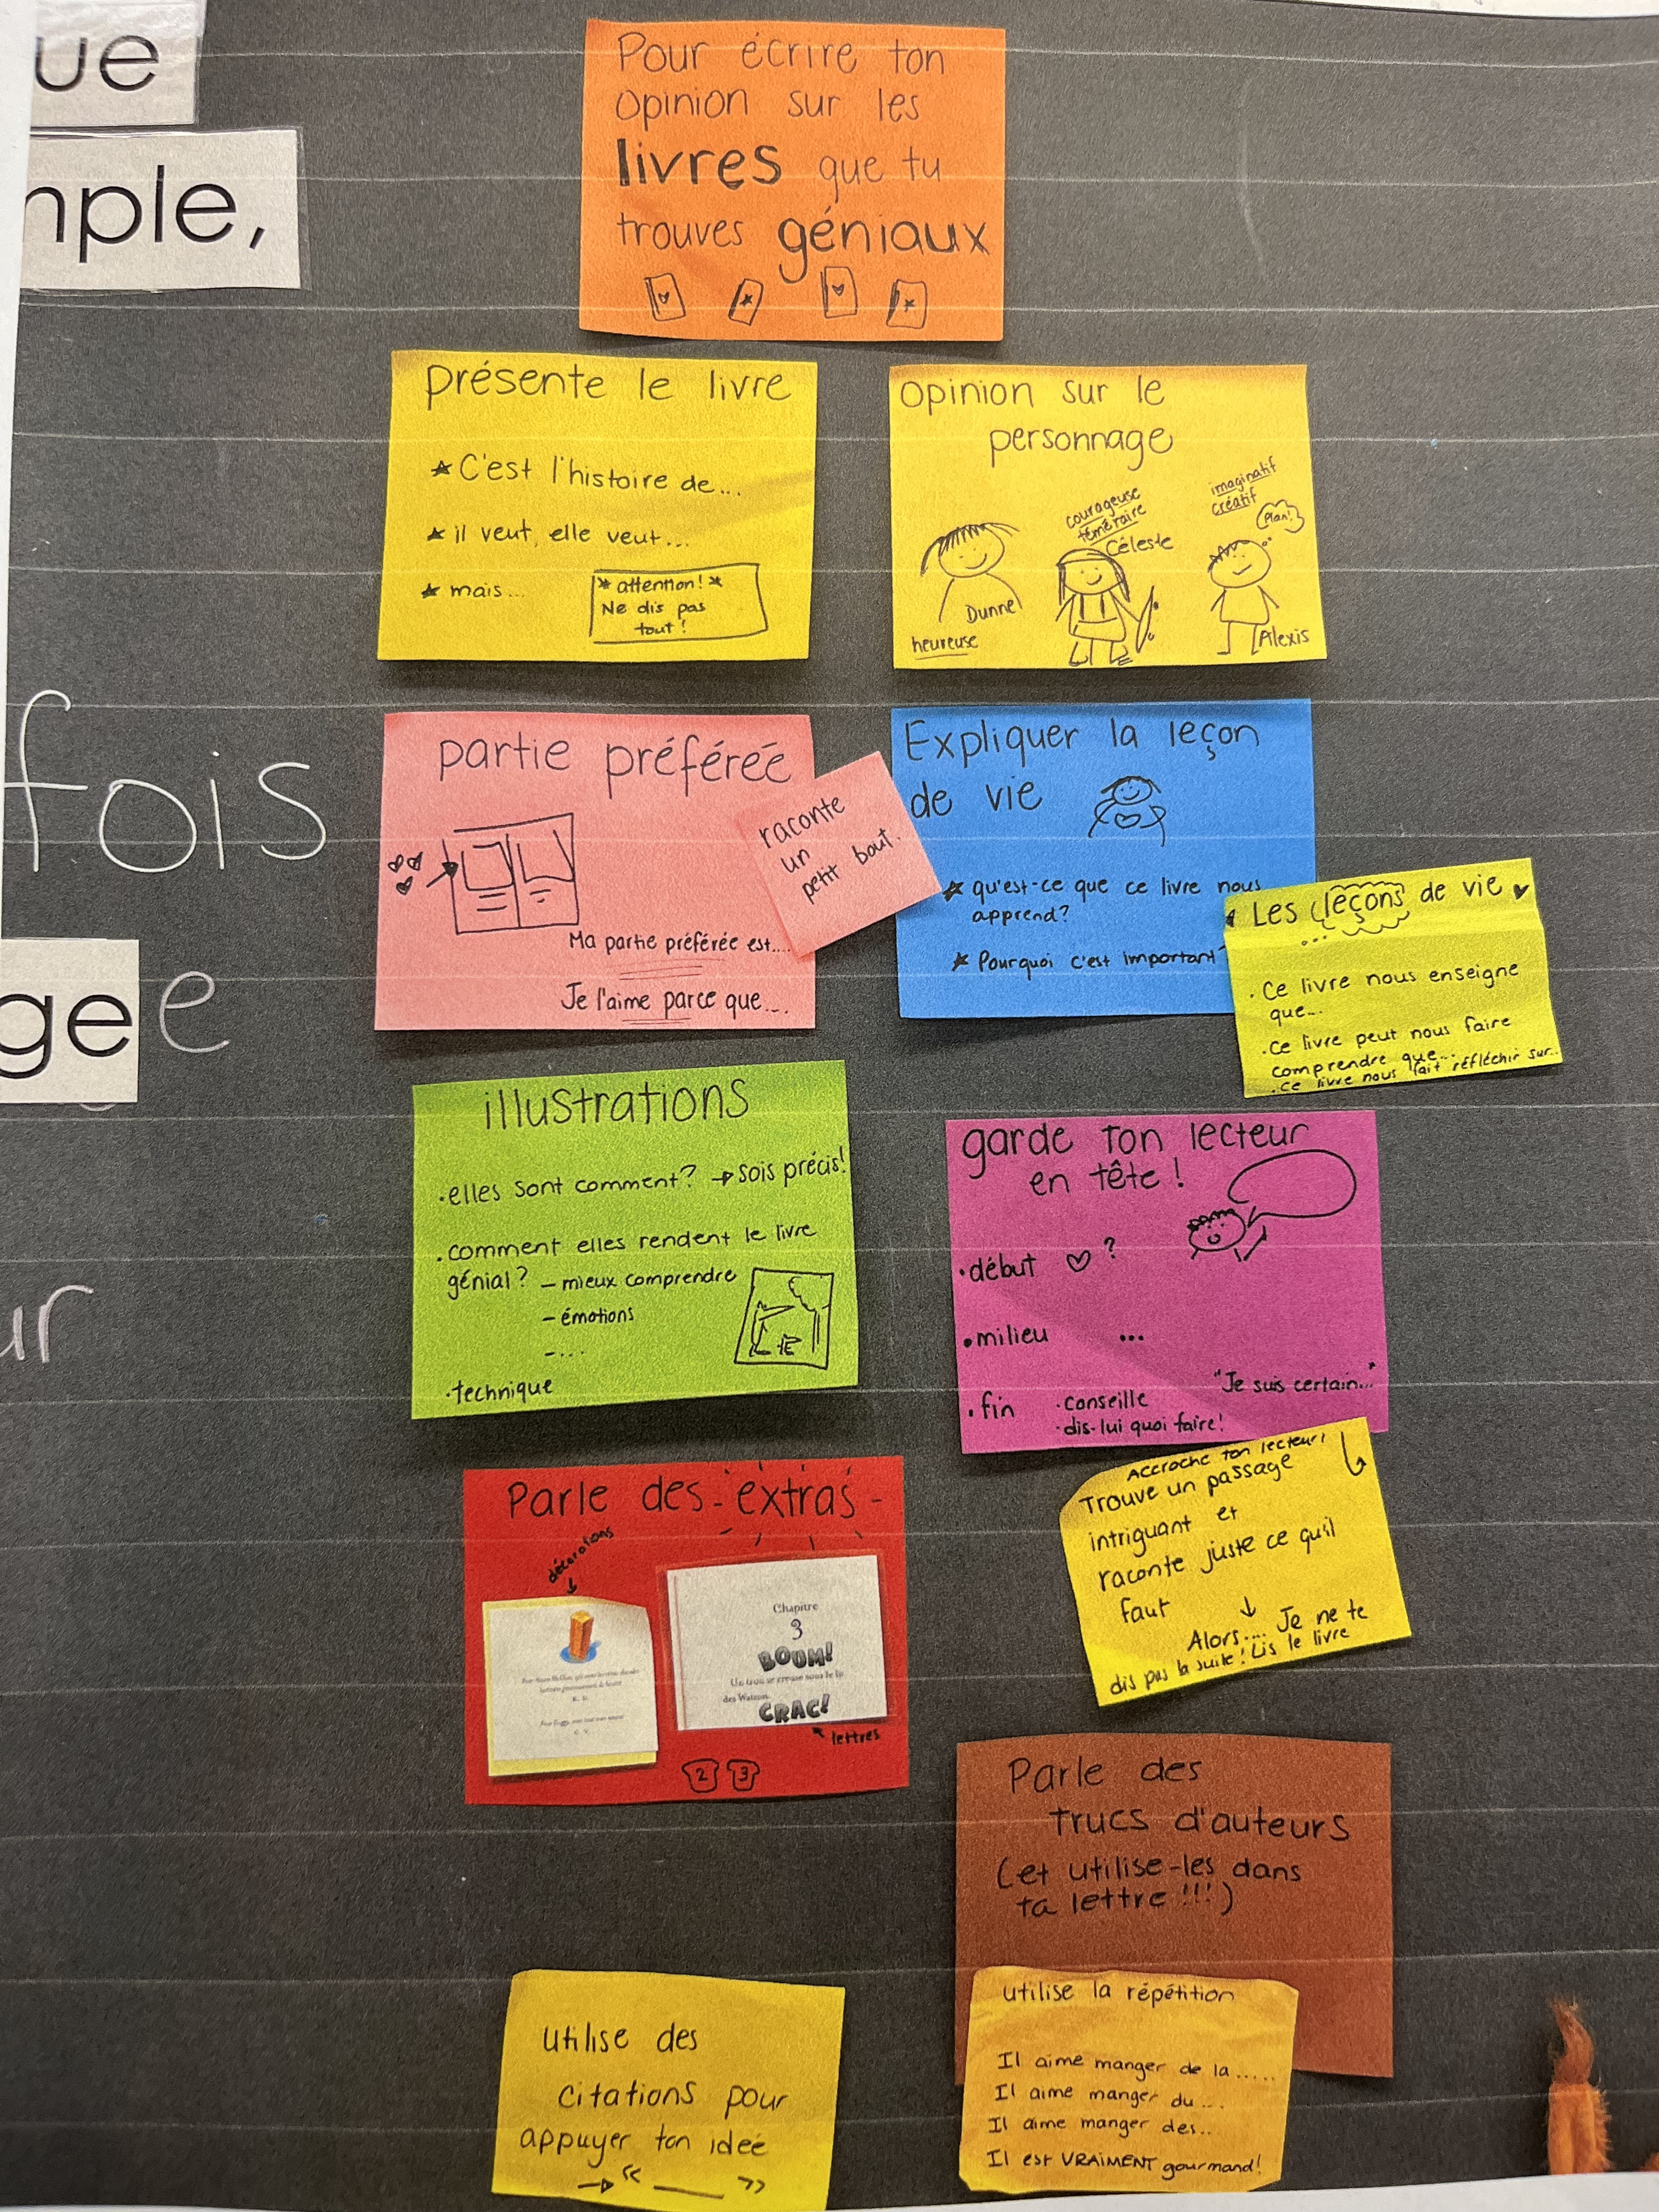 ue
mple,
fois
gee
ur
Pour écrire ton
opinion sur les
livres que tu
trouves géniaux
présente le livre
C'est l'histoire de...
il veut, elle veut...
mais...
* attention! *
Ne dis pas
tout!
opinion sur le
personnage
heureuse
Dunne
courageuse
téméraire
Céleste
imaginatif
créatif
Plan!
Alexis
partie préféreé
Ma partie préférée est....
Je l'aime parce que...
raconte
un
petit bout.
Expliquer la leçon
de vie
qu'est-ce que ce livre nous
apprend?
Pourquoi c'est important
Les leçons de vie
...
. Ce livre nous enseigne
que...
. Ce livre peut nous faire
comprendre que...
. Ce livre nous fait réfléchir sur..
illustrations
.elles sont comment? → Sois précis!
.comment elles rendent le livre
génial? - mieux comprendre
- émotions
-...
.technique
garde ton lecteur
en tête!
• début ♡ ?
• milieu ...
• fin
. conseille
. dis-lui quoi faire!
"Je suis certain..."
Accroche ton lecteur!
Trouve un passage
intriguant et
raconte juste ce qu'il
faut
↓
Alors.... Je ne te
dis pas la suite! Lis le livre
Parle des extras
décorations
Chapitre
3
BOUM!
Un trou se creuse sous le lit
des Watson.
CRAC!
lettres
2 3
Parle des
trucs d'auteurs
(et utilise-les dans
ta lettre!!!)
utilise la répétition
Il aime manger de la.....
Il aime manger du...
Il aime manger des..
Il est VRAIMENT gourmand!
utilise des
citations pour
appuyer ton ideé
→ « ___ »